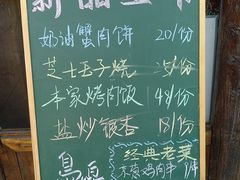 新品上市
奶油蟹肉饼 20/份
芝士玉子烧 25/份
本家烤肉饭 48/份
盐炒银杏 18/份
经典老菜